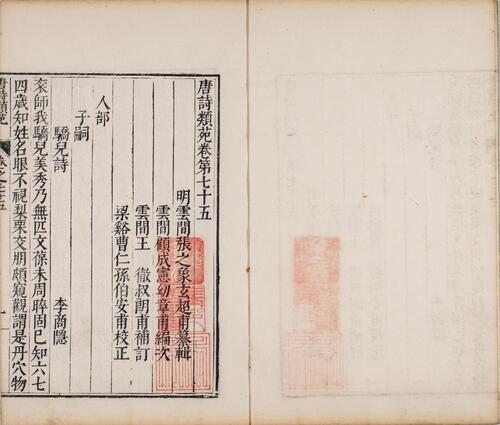 唐詩類苑卷第七十五
明雲間張之象玄超甫纂輯
雲間顧成憲幼章甫編次
雲間王徹叔朗甫補訂
梁谿曹仁孫伯安甫校正
人部
子嗣
驕兒詩 李商隱
衮師我驕兒美秀乃無匹文葆未周晬固已知六七
四歳知姓名眼不視梨栗交朋頗窺觀謂是丹穴物
唐詩類苑